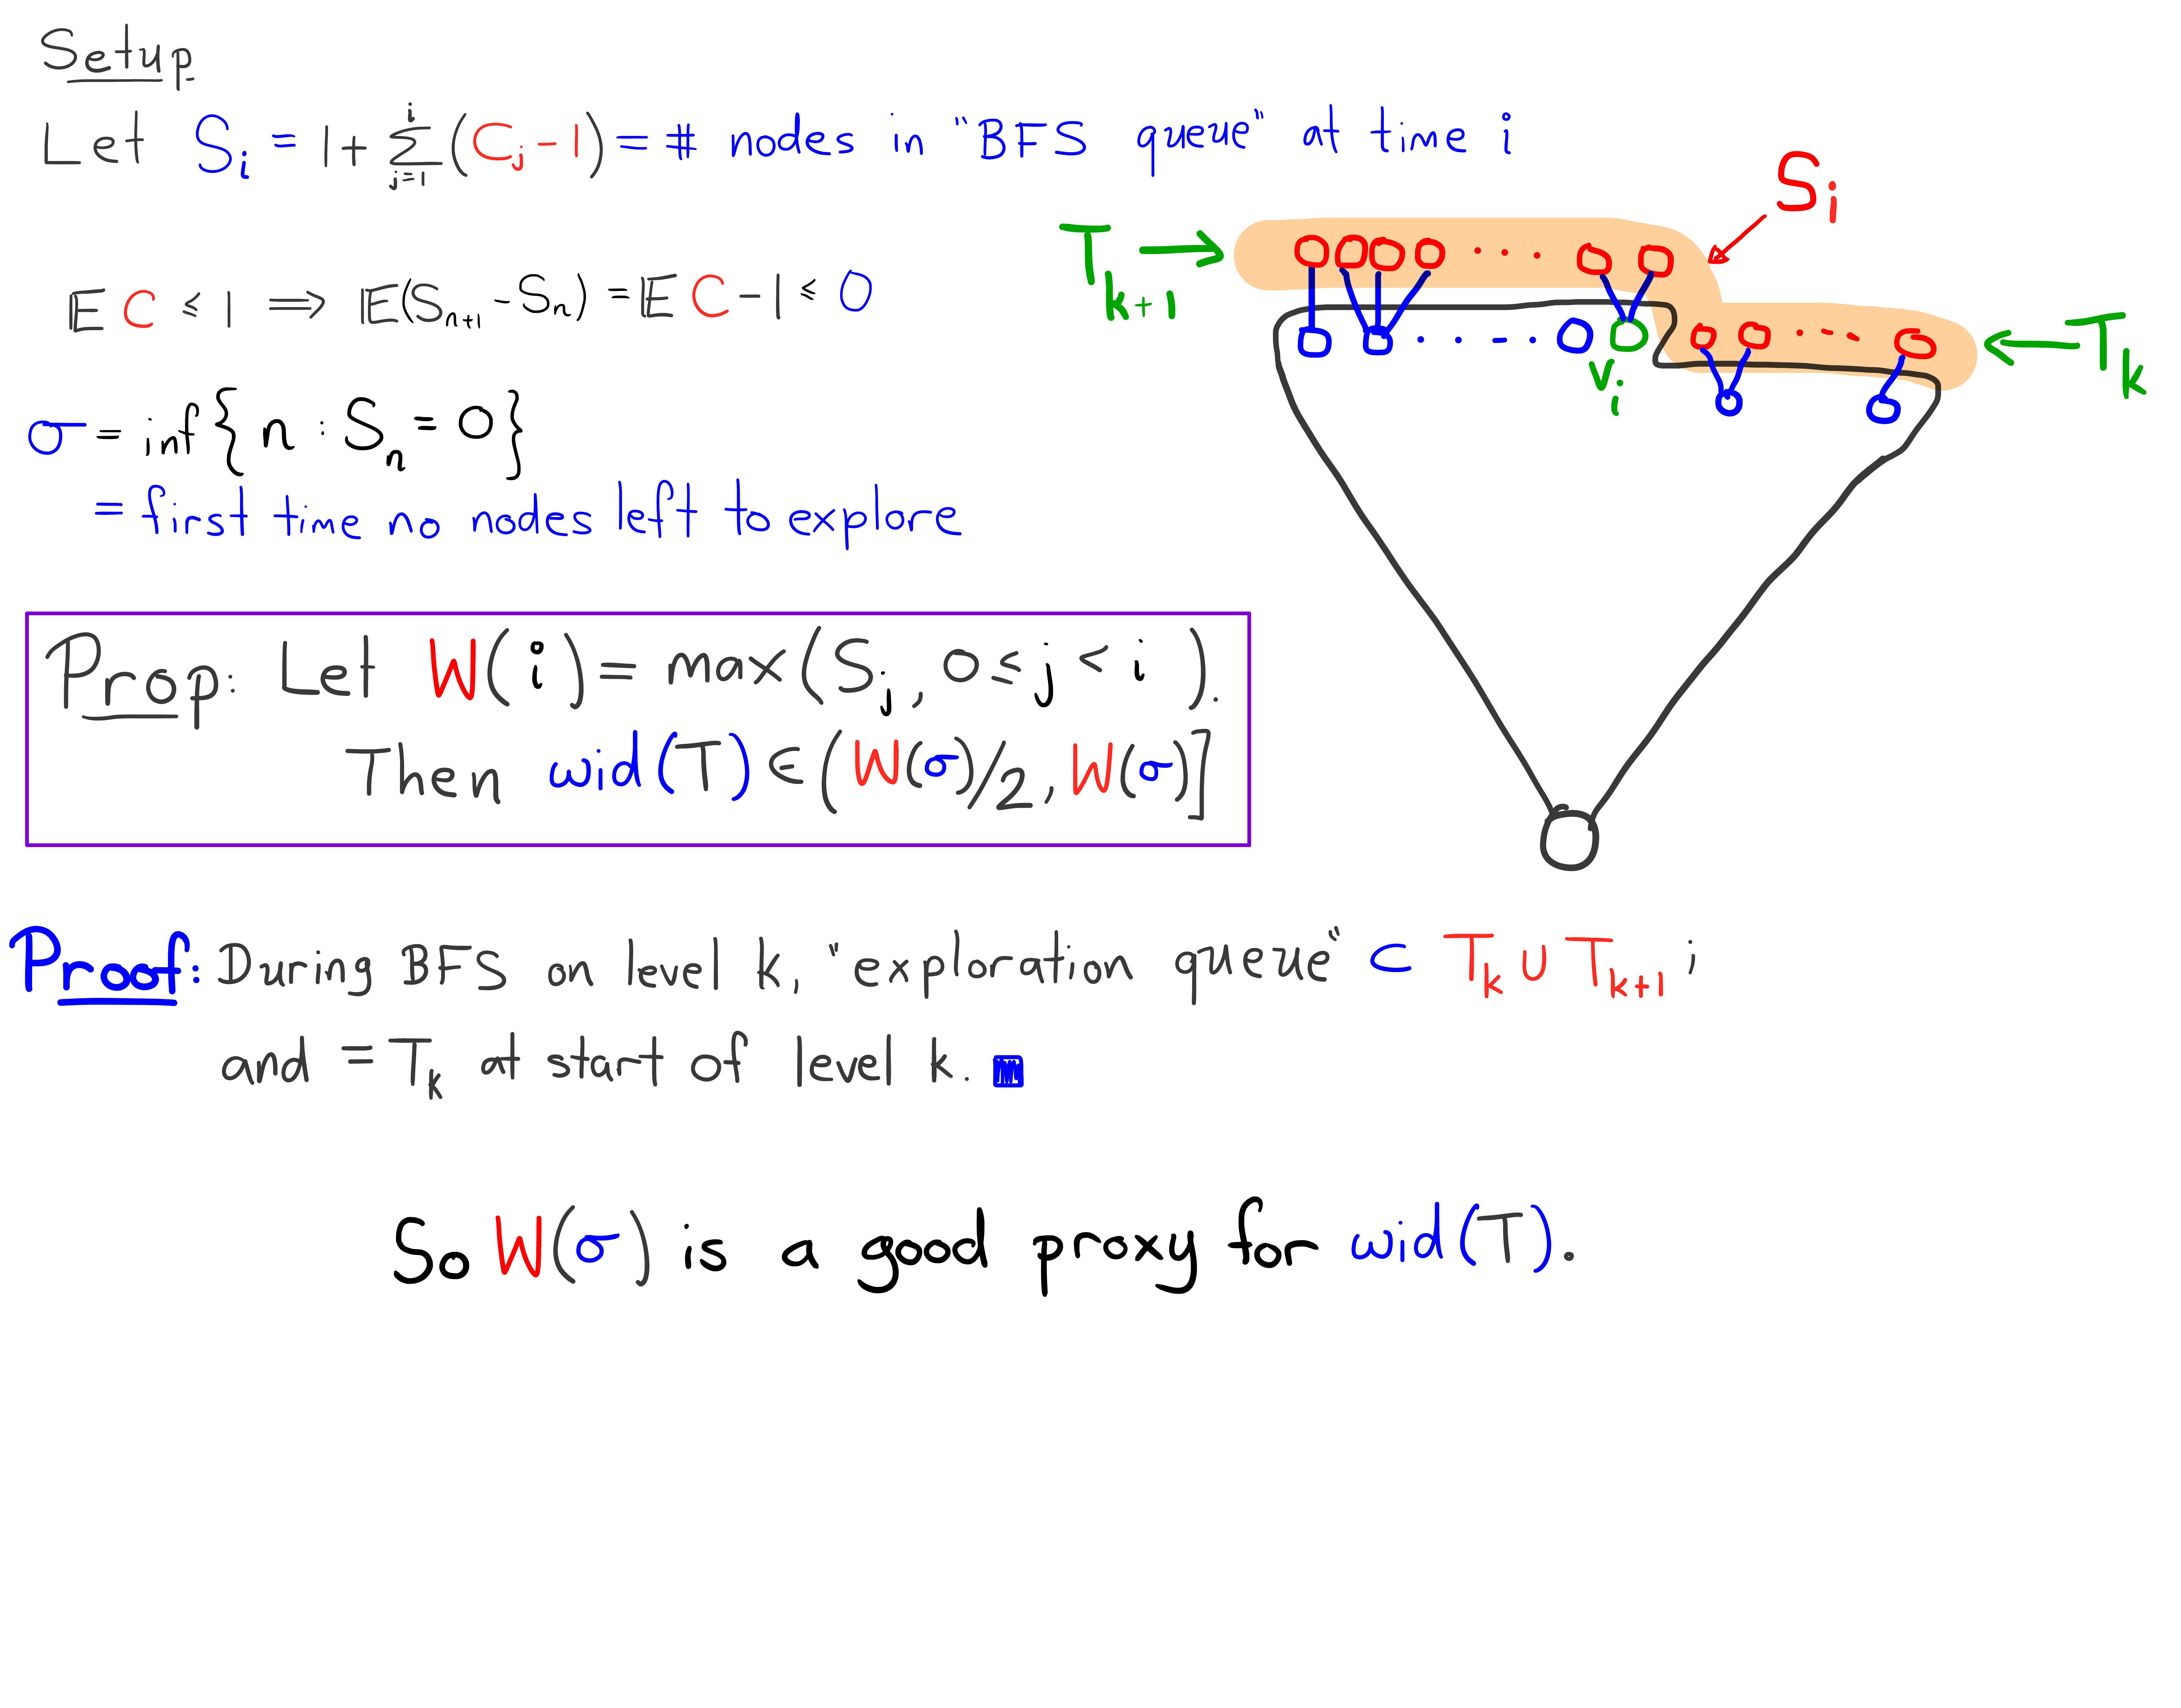 Setup
Let S_i = 1 + ∑_{j=1}^{i} (C_j - 1) = # nodes in "BFS queue" at time i
S_i
T_{k+1} →
← T_k
v_i
𝔼 C ≤ 1 ⟹ 𝔼(S_{n+1} - S_n) = 𝔼 C - 1 ≤ 0
σ = inf{ n : S_n = 0 }
= first time no nodes left to explore
Prop: Let W(i) = max(S_j, 0 ≤ j < i).
Then wid(T) ∈ (W(σ)/2, W(σ)]
Proof: During BFS on level k, "exploration queue" ⊂ T_k ∪ T_{k+1} ;
and = T_k at start of level k.
So W(σ) is a good proxy for wid(T).